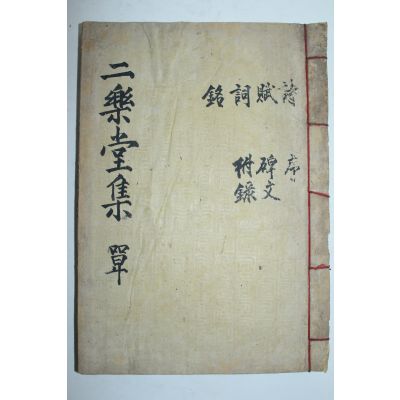 二樂堂集 單
詩 序
賦 碑文
詞 附錄
銘